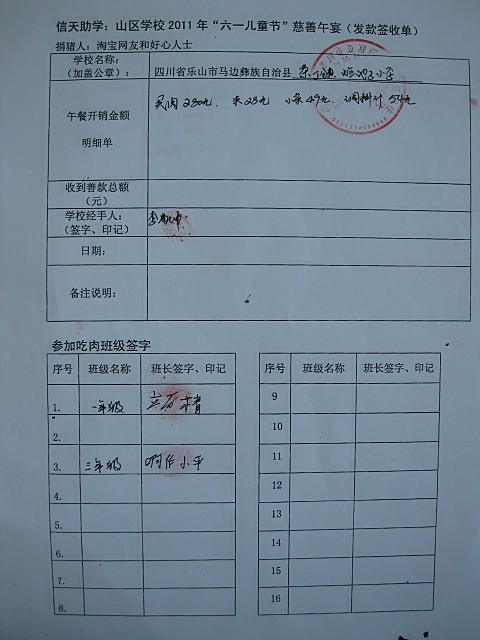 信天助学：山区学校 2011 年“六一儿童节”慈善午宴（发款签收单）
捐猪人：淘宝网友和好心人士
学校名称：
（加盖公章）： 四川省乐山市马边彝族自治县
午餐开销金额
明细单
买肉280元、米28元 小菜49元、调料计54元
收到善款总额
（元）
学校经手人：
（签字、印记）
日期：
备注说明：
参加吃肉班级签字
序号 班级名称 班长签字、印记
1. 一年级
2.
3. 三年级 阿作小平
4.
5.
6.
7.
8.
序号 班级名称 班长签字、印记
9
10
11
12
13
14
15
16